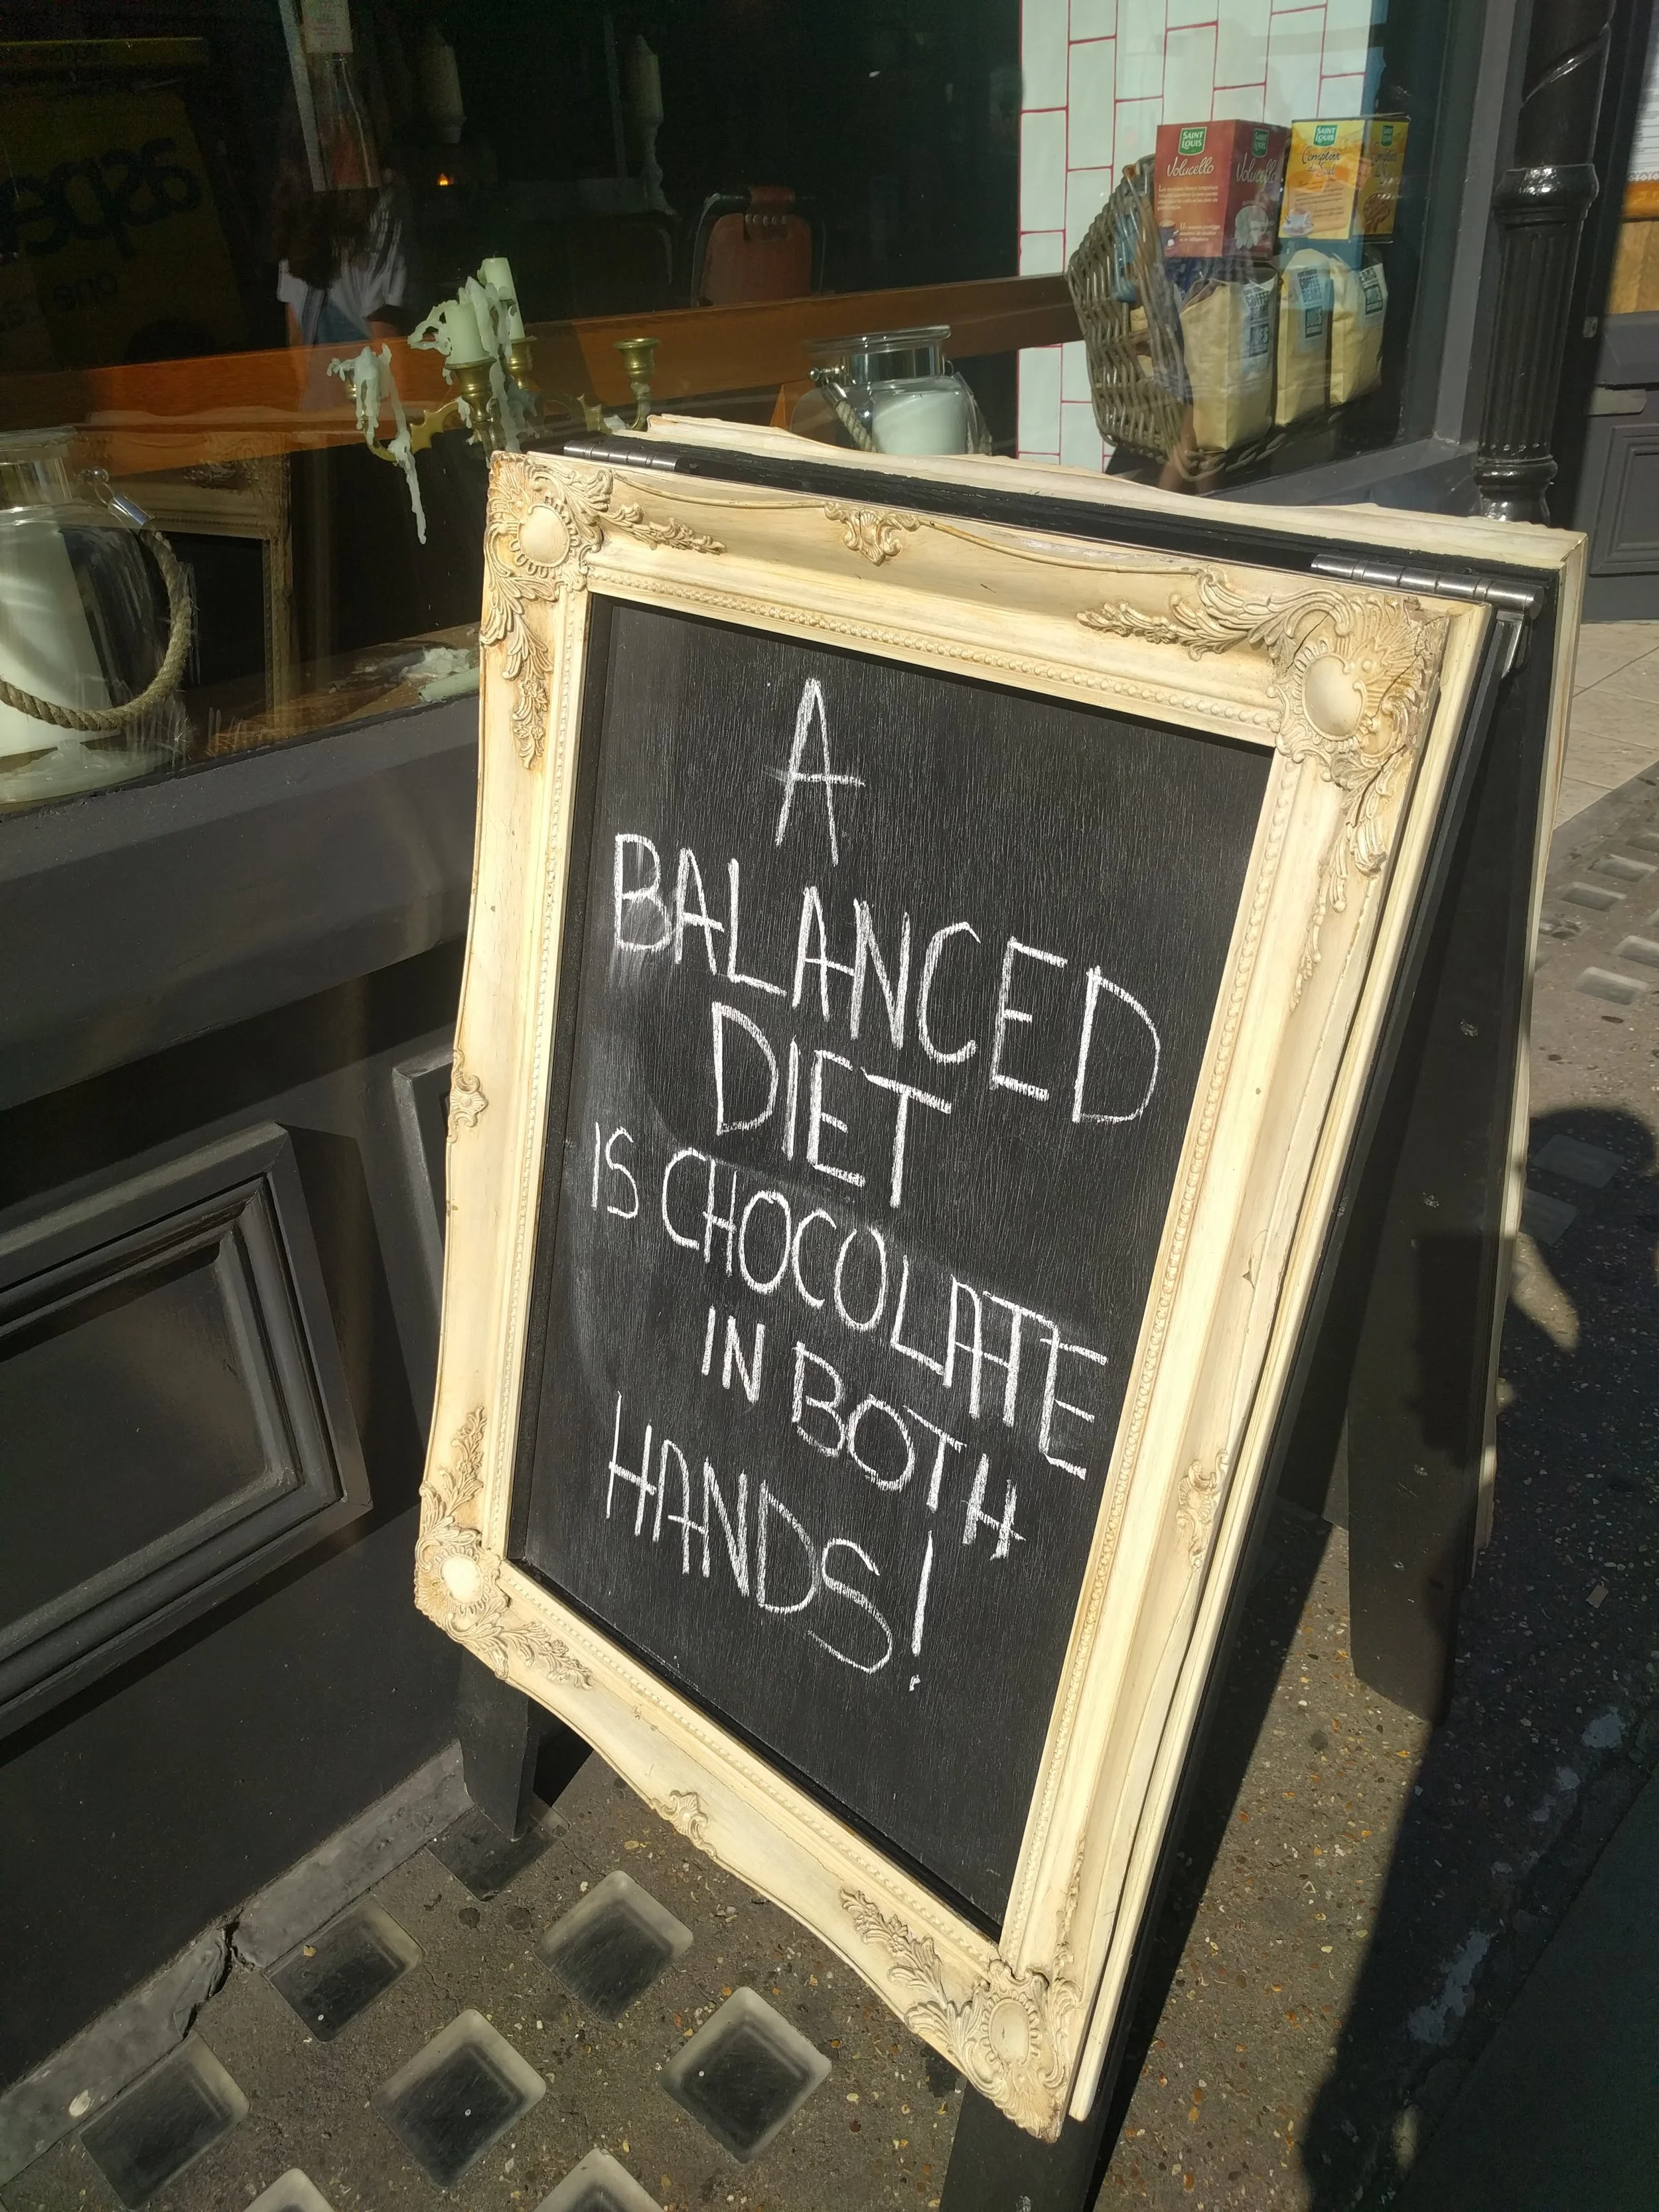 A
BALANCED
DIET
IS CHOCOLATE
IN BOTH
HANDS!
SAINT LOUIS
Volucello
SAINT LOUIS
SAINT LOUIS
COFFEE